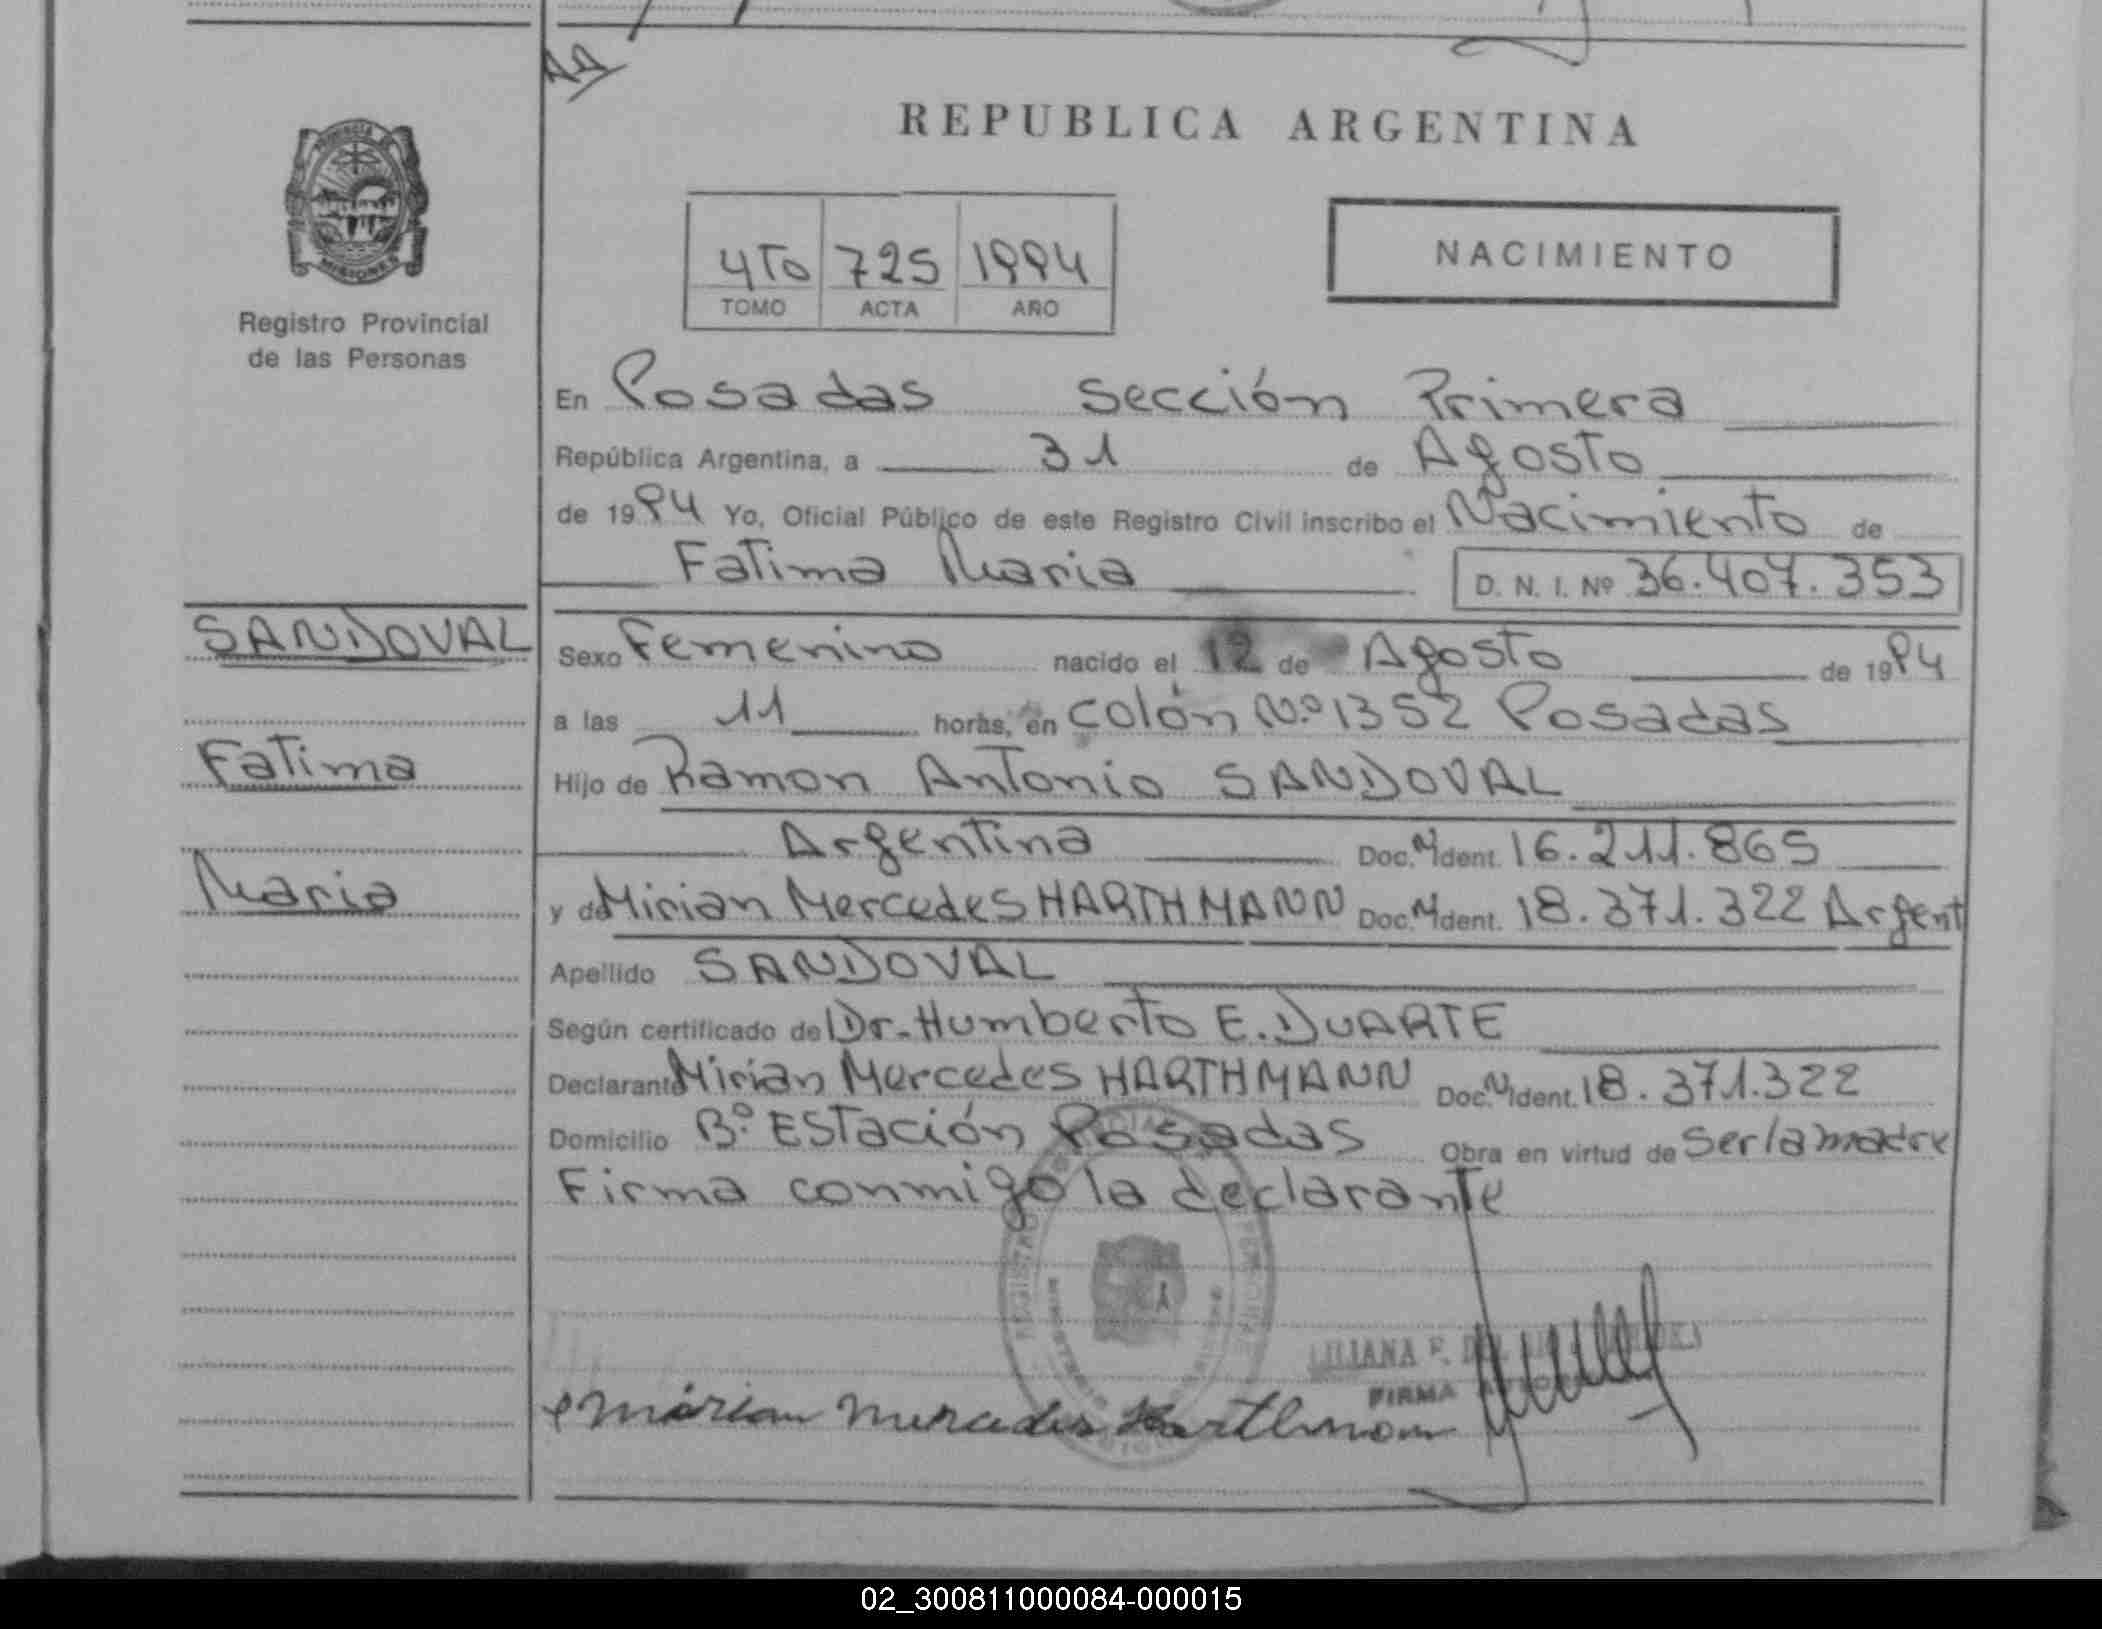 REPUBLICA ARGENTINA
MISIONES
Registro Provincial
de las Personas
4To 725 1994
TOMO ACTA AÑO
NACIMIENTO
En Posadas Sección Primera
República Argentina, a 31 de Agosto
de 1994 Yo, Oficial Público de este Registro Civil inscribo el Nacimiento de
Fatima Maria D. N. I. Nº 36.407.353
SANDOVAL
Fatima
Maria
Sexo Femenino nacido el 12 de Agosto de 1994
a las 11 horas, en Colón N.º 1352 Posadas
Hijo de Ramon Antonio SANDOVAL
Argentina Doc. N Ident. 16.211.865
y de Mirian Mercedes HARTHMANN Doc. N Ident. 18.371.322 Argent
Apellido SANDOVAL
Según certificado de Dr. Humberto E. DUARTE
Declarante Mirian Mercedes HARTHMANN Doc. N Ident. 18.371.322
Domicilio Bº. Estación Posadas Obra en virtud de ser la madre
Firma conmigo la declarante
LILIANA F. DEL
FIRMA
Mirian Mercedes Harthman
02_300811000084-000015